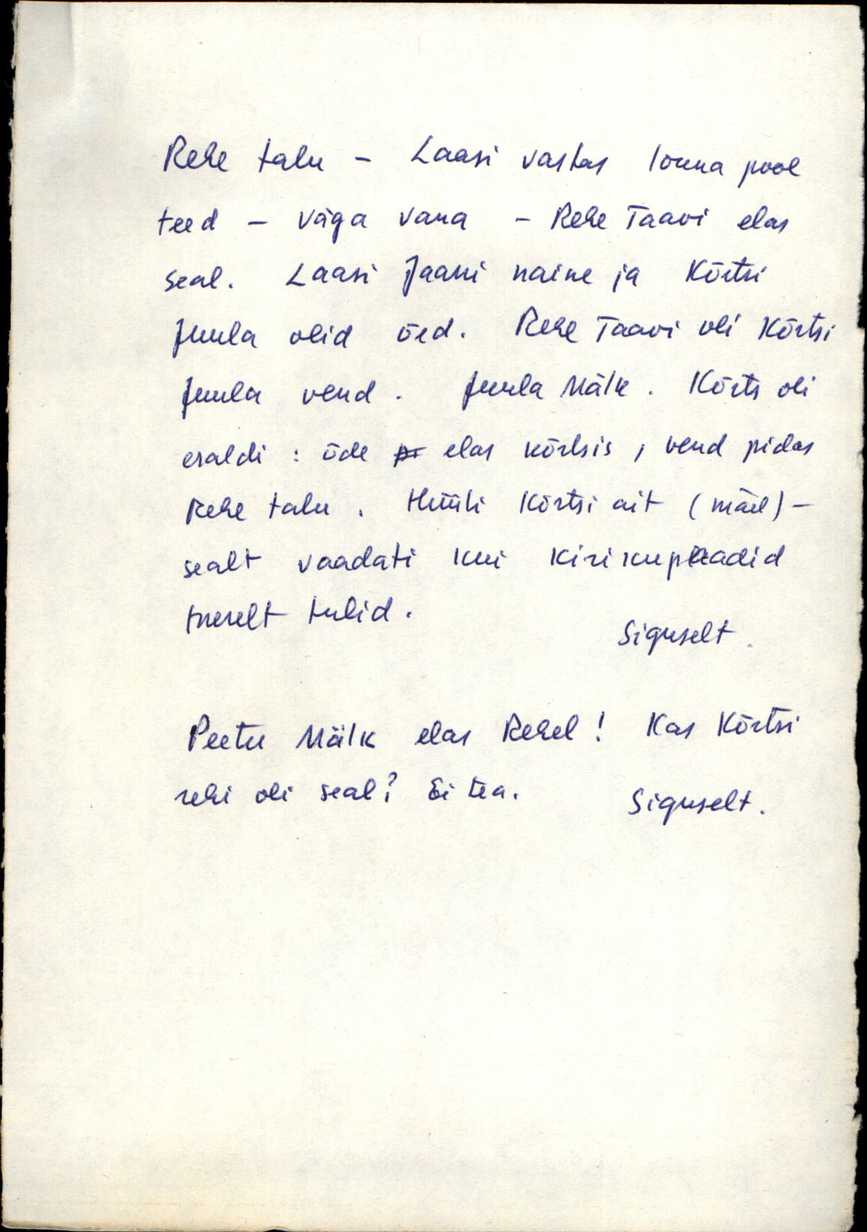 Rehe talu – Laasi vastas lõuna pool
teed – väga vana – Rehe Taavi elas
seal. Laasi Jaani naine ja Kõrtsi
Juula olid õed. Rehe Taavi oli Kõrtsi
Juula vend. Juula Mälk. Kõrts oli
eraldi : õde elas kõrtsis, vend pidas
Rehe talu. Hüüti Kõrtsi ait (mäel) –
sealt vaadati kui kirikupaadid
merelt tulid.
Siguselt.
Peetu Mälk elas Rehel! Kas Kõrtsi
rehi oli seal? Ei tea.
Siguselt.